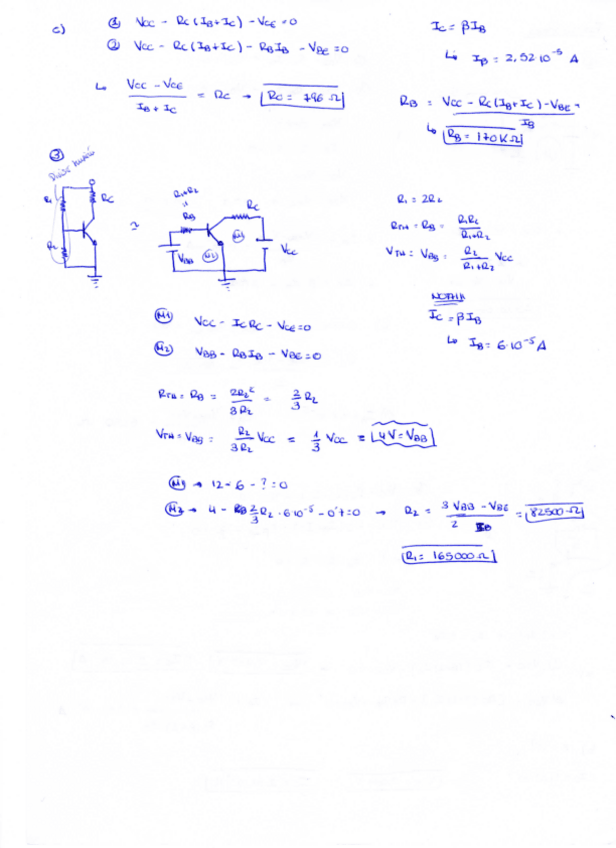 c) ① Vcc - Rc (IB+Ic) - VCE = 0
② Vcc - Rc (IB+Ic) - RB IB - VBE = 0
Ic = βIB
↳ IB = 2,52 10⁻⁵ A
↳ Vcc - VCE / IB + Ic = Rc → Rc = 796 Ω
RB = Vcc - Rc (IB+Ic) - VBE / IB =
↳ RB = 170K Ω
③
R1
Rc
R2
≃
R1+R2
"
RB
Rc
VBB
M2
M1
Vcc
R1 = 2R2
RTH = RB = R1R2 / R1+R2
VTH = VBB = R2 / R1+R2 Vcc
Ic = βIB
↳ IB = 6·10⁻⁵ A
M1 Vcc - Ic Rc - VCE = 0
M2 VBB - RB IB - VBE = 0
RTH = RB = 2R2² / 3R2 = 2/3 R2
VTH = VBB = R2 / 3R2 Vcc = 1/3 Vcc = 4V = VBB
M1 → 12 - 6 - ? = 0
M2 → 4 - 2/3 R2 · 6·10⁻⁵ - 0'7 = 0 → R2 = 3 VBB - VBE / 2 IB = 82500 Ω
R1 = 165000 Ω